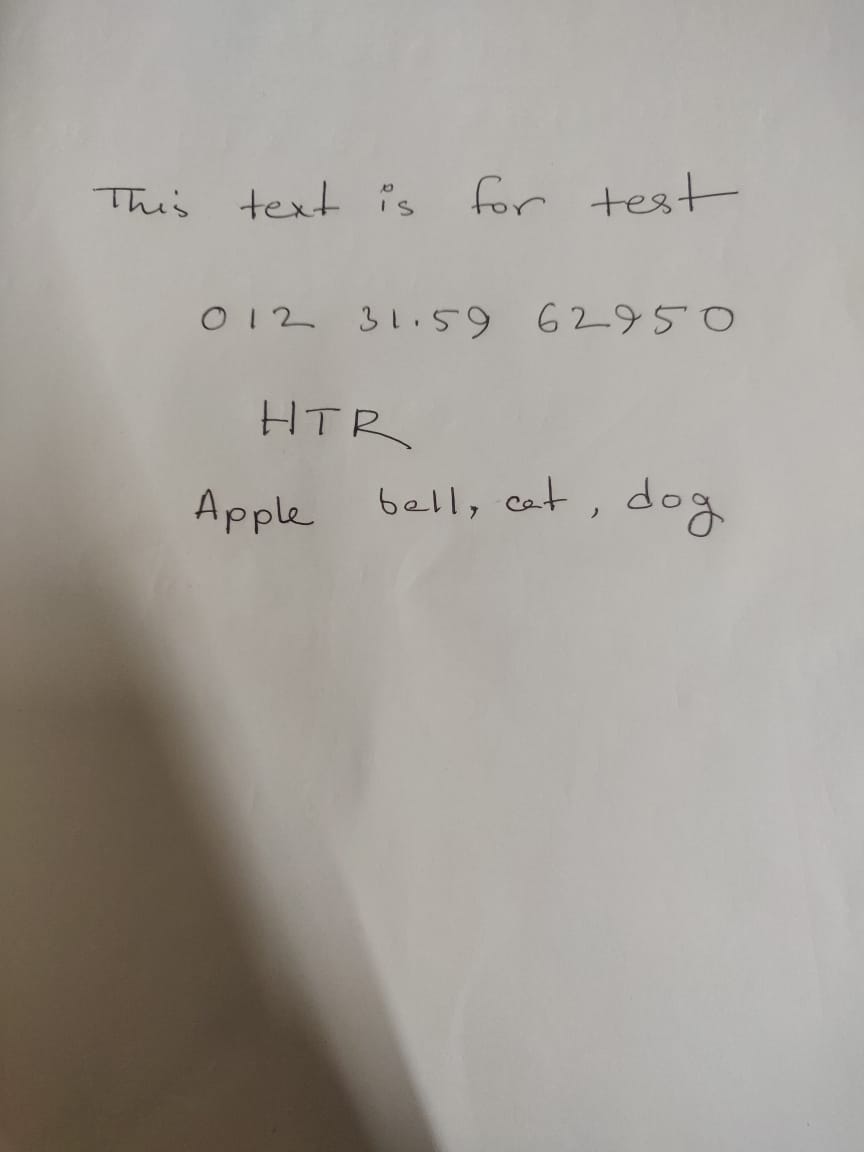 This text is for test
012 31.59 62950
HTR
Apple bell, cat, dog